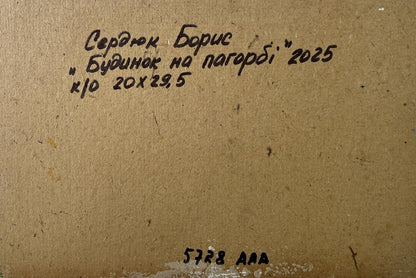 Сердюк Борис
"Будинок на пагорбі" 2025
к/о 20х29,5
5728 AAA